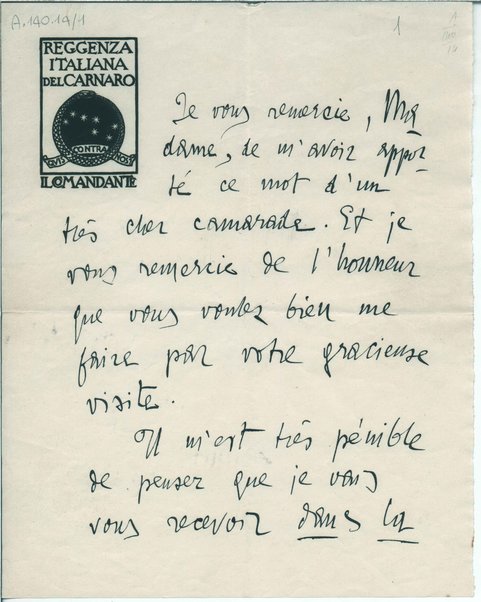 A.140.14/1
1
A
140
14
REGGENZA
ITALIANA
DEL CARNARO
QUIS CONTRA NOS
IL COMANDANTE
Je vous remercie, Ma
dame, de m'avoir appor
té ce mot d'un
très cher camarade. Et je
vous remercie de l'honneur
que vous voulez bien me
faire par votre gracieuse
visite.
Il m'est très pénible
de penser que je vais
vous recevoir dans la